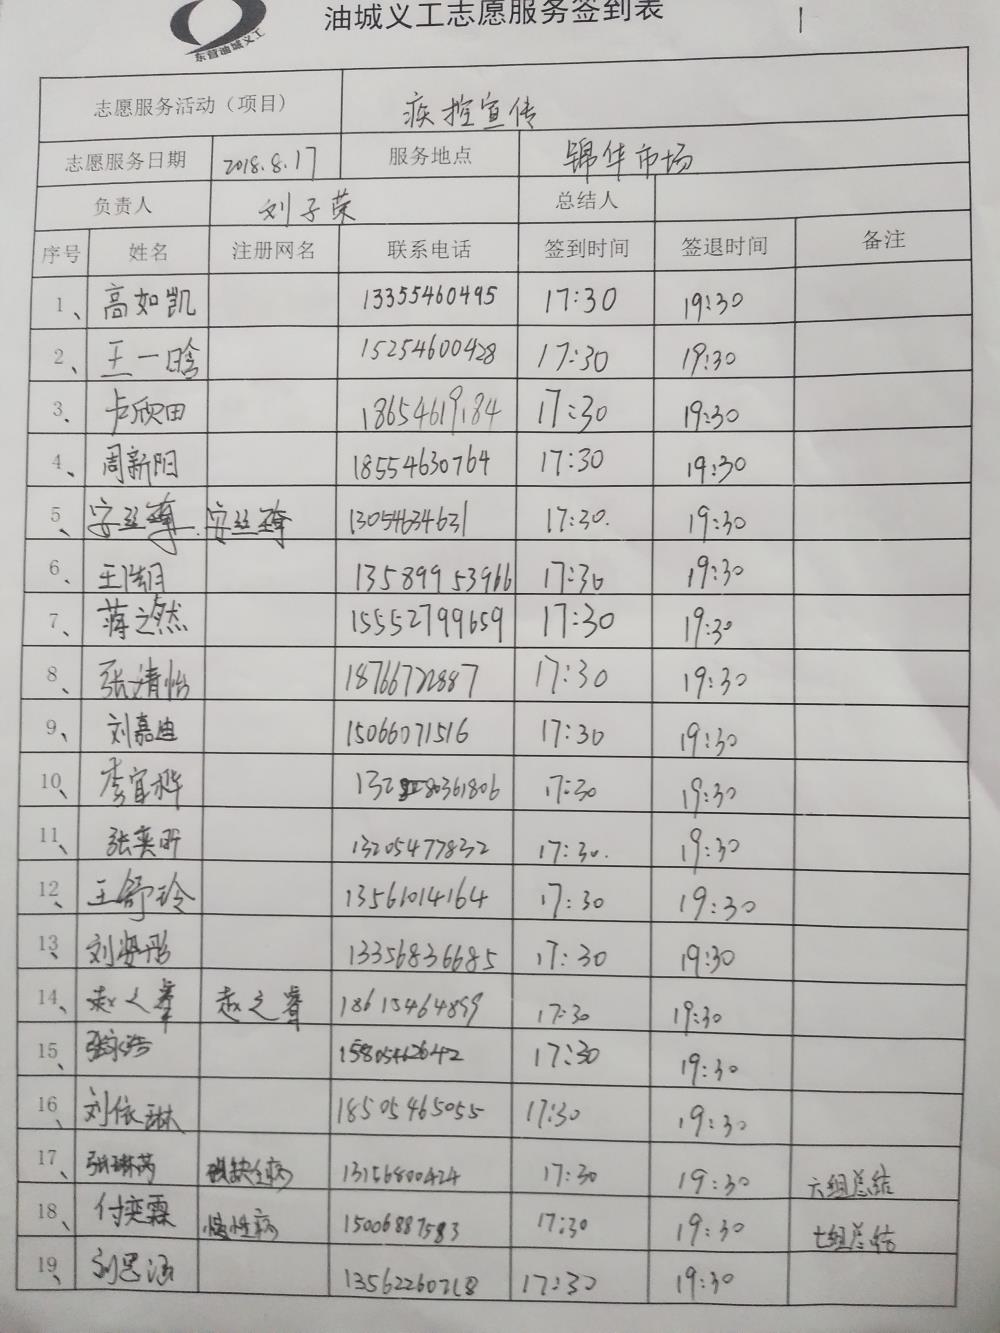 油城义工志愿服务签到表
东营油城义工
志愿服务活动（项目） 疾控宣传
志愿服务日期 2018.8.17 服务地点 锦华市场
负责人 刘子荣 总结人
序号 姓名 注册网名 联系电话 签到时间 签退时间 备注
1、 高如凯 13355460495 17:30 19:30
2、 王一晗 15254600428 17:30 19:30
3、 卢欣田 18654619184 17:30 19:30
4、 周新阳 18554630764 17:30 19:30
5、 13054634631 17:30. 19:30
6、 13589953966 17:30 19:30
7、 蒋之然 15552799659 17:30 19:30
8、 张婧怡 18766722887 17:30 19:30
9、 刘嘉迪 15066071516 17:30 19:30
10、 李宜桦 17:30 19:30
11、 张奕昕 13205477832 17:30. 19:30
12、 王舒玲 13561014164 17:30 19:30
13、 刘姿彤 13356836685 17:30 19:30
14、 赵之睿 赵之睿 18615464899 17:30 19:30
15、 张永浩 15805462642 17:30 19:30
16、 刘依琳 18505465055 17:30 19:30
17、 张琳芮 13156800424 17:30 19:30 六组总结
18、 付奕霖 慢性病 15006887583 17:30 19:30 七组总结
19、 刘思涵 13562260718 17:30 19:30